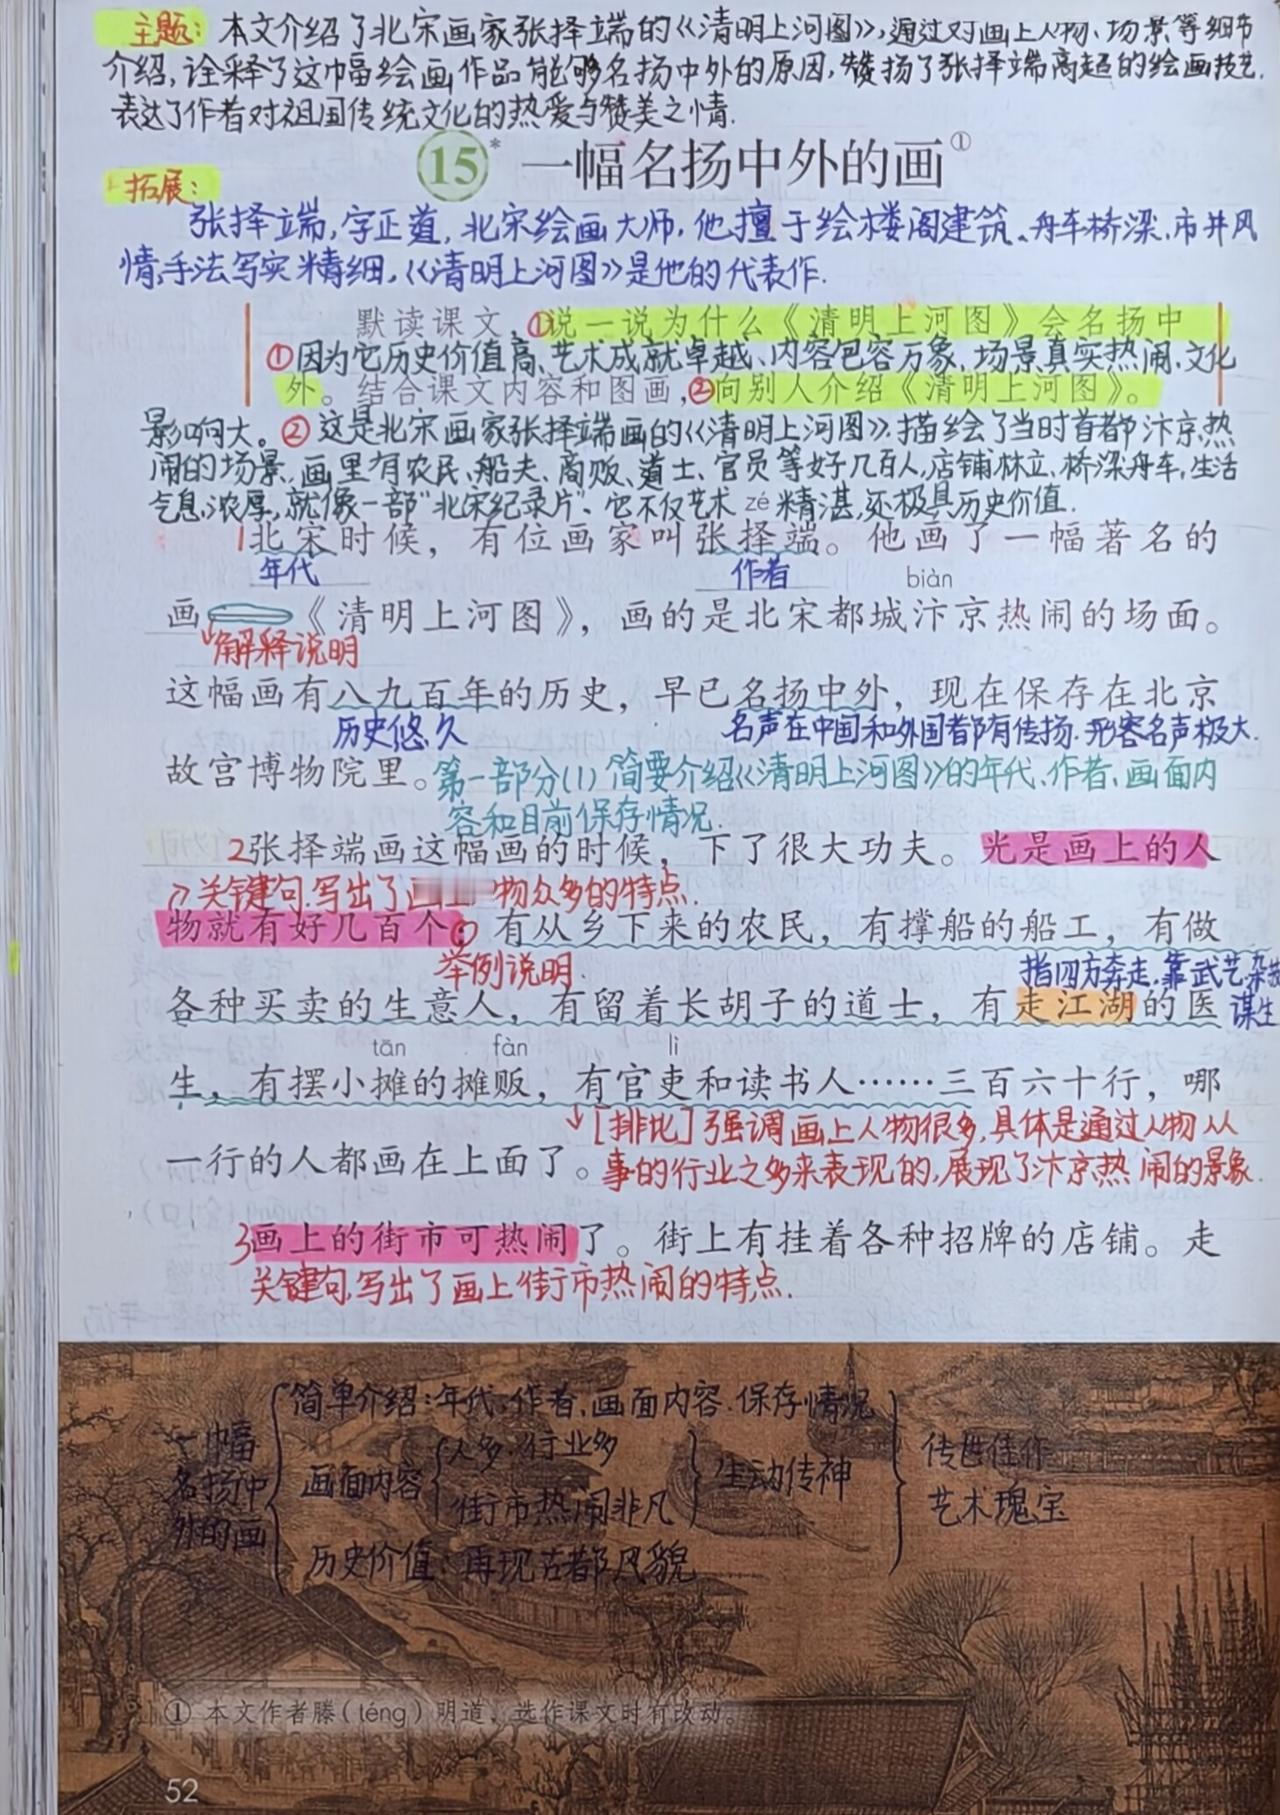 主题：本文介绍了北宋画家张择端的《清明上河图》，通过对画上人物、场景等细节
介绍，诠释了这幅绘画作品能够名扬中外的原因，赞扬了张择端高超的绘画技艺，
表达了作者对祖国传统文化的热爱与赞美之情.
15* 一幅名扬中外的画①
拓展：
张择端，字正道，北宋绘画大师，他擅于绘楼阁建筑、舟车桥梁、市井风
情，手法写实精细，《清明上河图》是他的代表作.
默读课文，①说一说为什么《清明上河图》会名扬中
①因为它历史价值高、艺术成就卓越、内容包容万象，场景真实热闹，文化
外。结合课文内容和图画，②向别人介绍《清明上河图》。
影响大。②这是北宋画家张择端画的《清明上河图》，描绘了当时首都汴京热
闹的场景，画里有农民、船夫、商贩、道士、官员等好几百人，店铺林立，桥梁舟车，生活
气息浓厚，就像一部“北宋纪录片”，它不仅艺术精湛，还极具历史价值.
zé
1北宋时候，有位画家叫张择端。他画了一幅著名的
年代 作者 biàn
画——《清明上河图》，画的是北宋都城汴京热闹的场面。
解释说明
这幅画有八九百年的历史，早已名扬中外，现在保存在北京
历史悠久 名声在中国和外国都有传扬.形容名声极大.
故宫博物院里。第一部分(1)简要介绍《清明上河图》的年代、作者、画面内
容和目前保存情况.
2张择端画这幅画的时候，下了很大功夫。光是画上的人
关键句.写出了画 物众多的特点.
物就有好几百个：有从乡下来的农民，有撑船的船工，有做
举例说明. 指四方奔走.靠武艺杂技
各种买卖的生意人，有留着长胡子的道士，有走江湖的医 谋生
tān fàn lì
生，有摆小摊的摊贩，有官吏和读书人……三百六十行，哪
[排比]强调画上人物很多，具体是通过人物从
一行的人都画在上面了。事的行业之多来表现的，展现了汴京热闹的景象.
3画上的街市可热闹了。街上有挂着各种招牌的店铺。走
关键句，写出了画上街市热闹的特点.
简单介绍：年代、作者、画面内容.保存情况
一幅
名扬中
外的画
画面内容
人多.行业多
街市热闹非凡
生动传神
传世佳作
艺术瑰宝
历史价值：再现古都风貌
① 本文作者滕（téng）明道，选作课文时有改动。
52